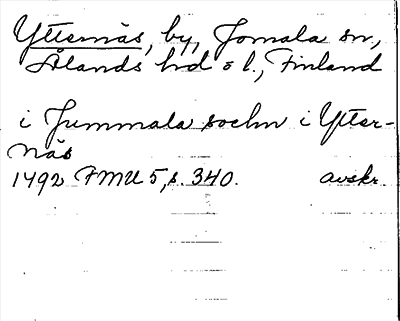 Ytternäs, by, Jomala sn,
Ålands hd o l., Finland
i Jummala sochn i Ytter-
näs
1492 FMU 5, s. 340. avskr.